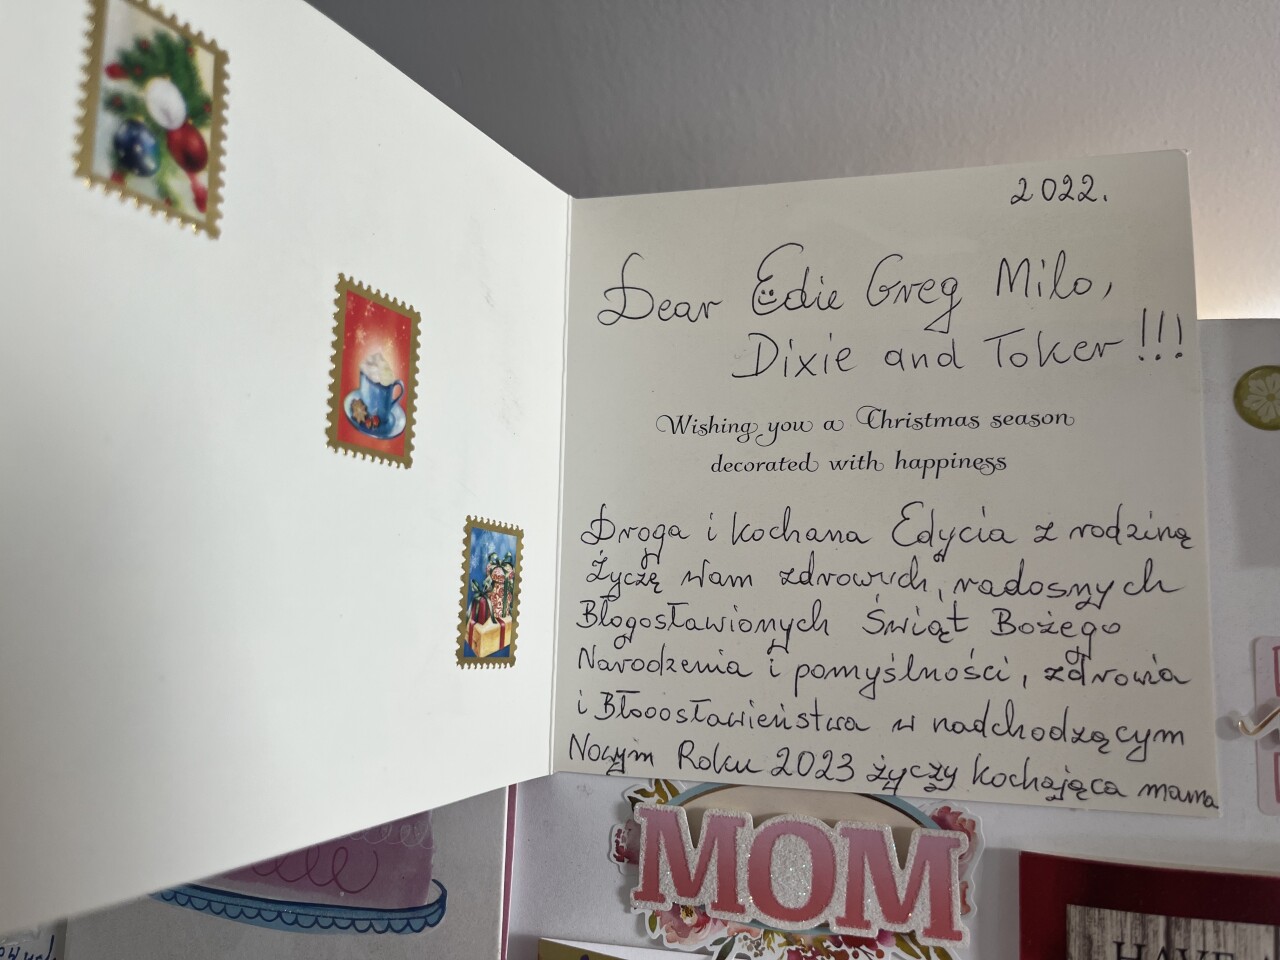 2022.
Dear Edie Greg Milo,
Dixie and Toker !!!
Wishing you a Christmas season
decorated with happiness
Droga i kochana Edycia z rodziną
Życzę Wam zdrowych, radosnych
Błogosławionych Świąt Bożego
Narodzenia i pomyślności, zdrowia
i Błooosławieństwa w nadchodzącym
Nowym Roku 2023 życzy kochająca mama
MOM
HAVE A